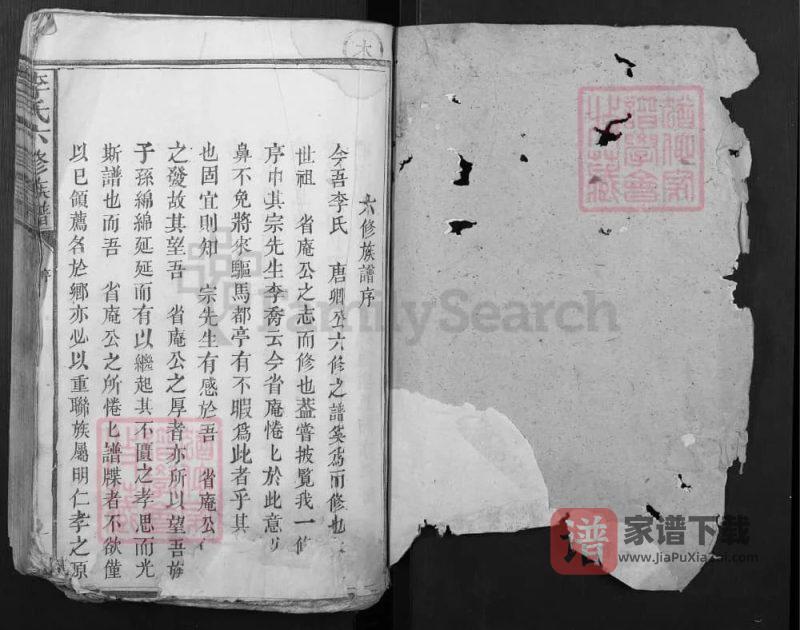 六修族譜序
今吾李氏　唐卿公六修之譜奚爲而修也
世祖　省庵公之志而修也葢嘗披覧我一修
序中其宗先生李喬云今省庵惓匕於此意
鼻不免將來驅馬都亭有不暇爲此者乎其
也固宜則知　宗先生有感於吾　省庵公
之發故其望吾　省庵公之厚者亦所以望吾族
子孫綿綿延延而有以繼起其不匱之孝思而光
斯譜也而吾　省庵公之所惓匕譜牒者不欲僅
以已領薦名於鄉亦必以重聯族屬明仁孝之原
李氏六修族譜
序
FamilySearch
譜
家谱下载
www.JiaPuXiaZai.com